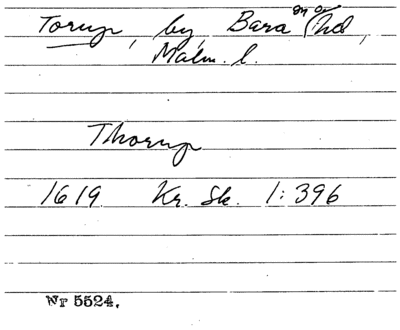 Torup, by, Bara sn o. hd,
Malm. l.
Thorup
1619 Kr. Sk. 1:396
Nr 5524.